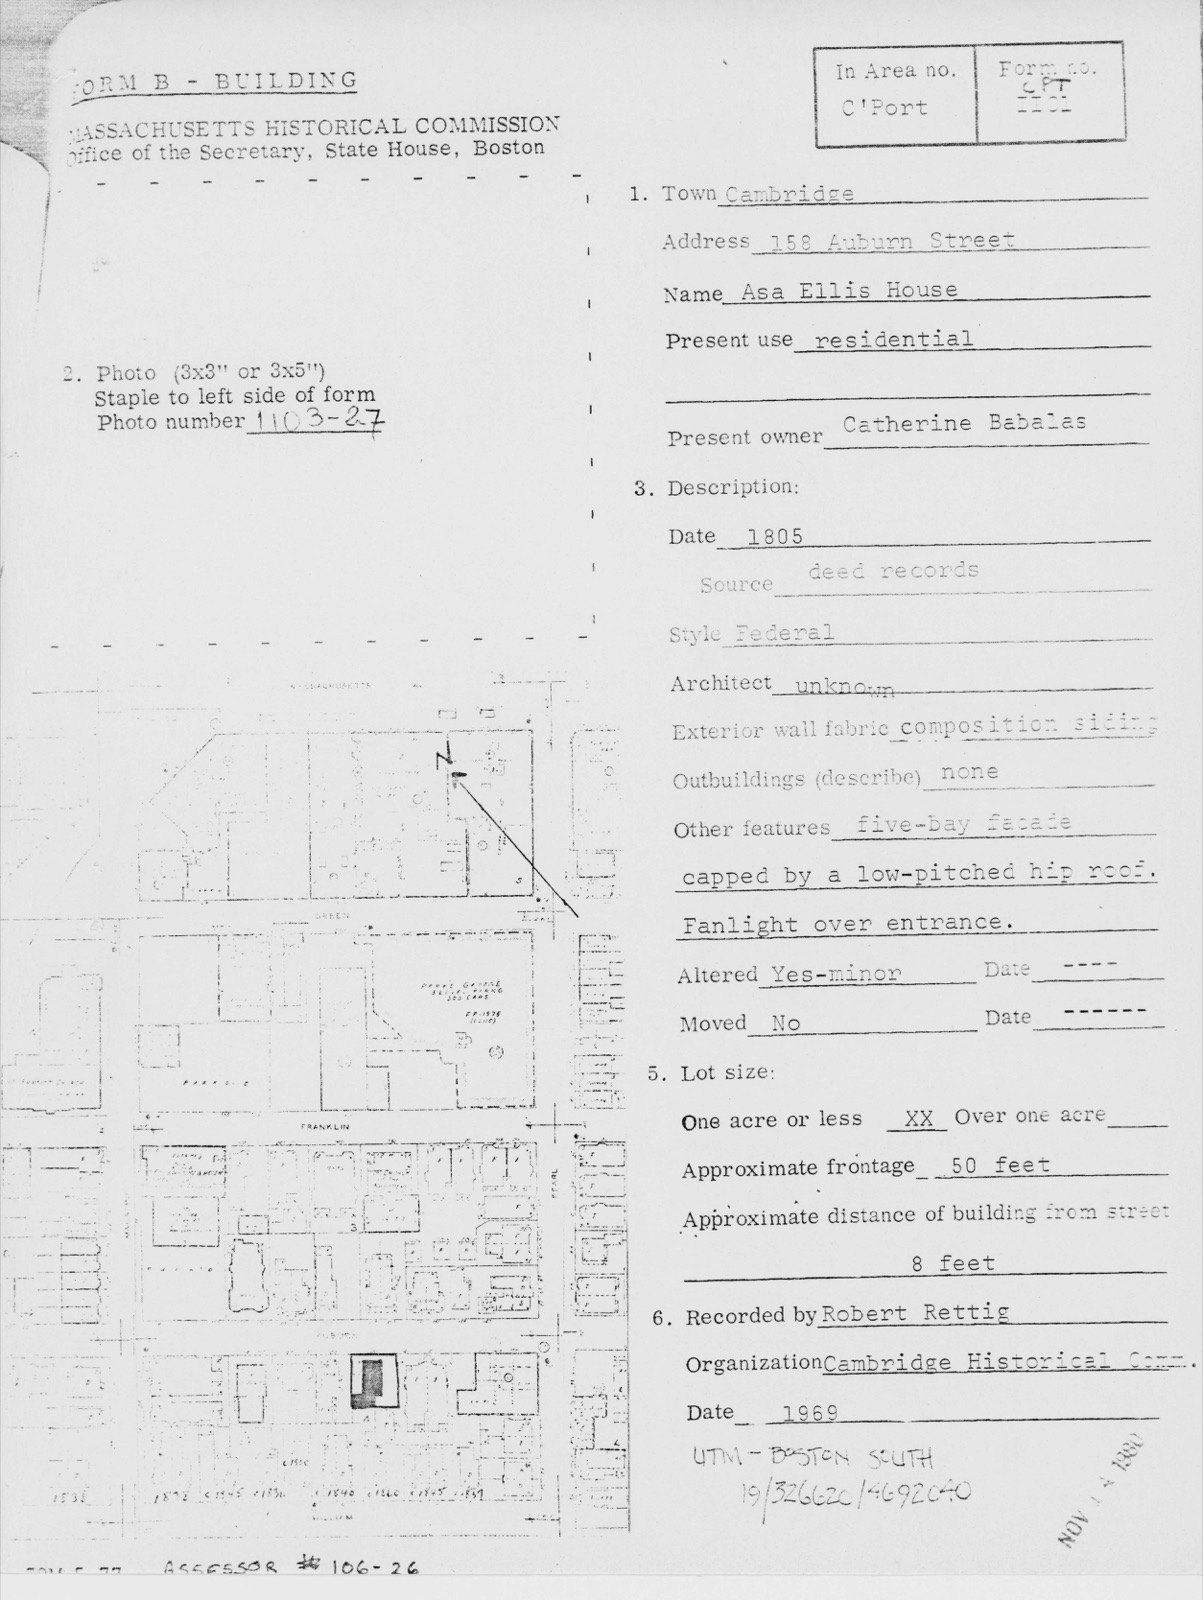 FORM B - BUILDING
MASSACHUSETTS HISTORICAL COMMISSION
Office of the Secretary, State House, Boston
In Area no.
C'Port
Form no.
CPT
2. Photo (3x3" or 3x5")
Staple to left side of form
Photo number 1103-27
1. Town Cambridge
Address 158 Auburn Street
Name Asa Ellis House
Present use residential
Present owner Catherine Babalas
3. Description:
Date 1805
Source deed records
Style Federal
Architect unknown
Exterior wall fabric composition siding
Outbuildings (describe) none
Other features five-bay facade
capped by a low-pitched hip roof.
Fanlight over entrance.
Altered Yes-minor Date ----
Moved No Date ------
5. Lot size:
One acre or less XX Over one acre
Approximate frontage 50 feet
Approximate distance of building from street
8 feet
6. Recorded by Robert Rettig
Organization Cambridge Historical Comm.
Date 1969
UTM - BOSTON SOUTH
19/326620/4692040
NOV 1980
MASSACHUSETTS AV
N
GREEN
PARKING
FRANKLIN
PEARL
3
AUBURN
4
c1900
1838 1838 c1845 c1836 c1846 c1860 c1845 c1839
WILLIAM
ASSESSOR # 106-26